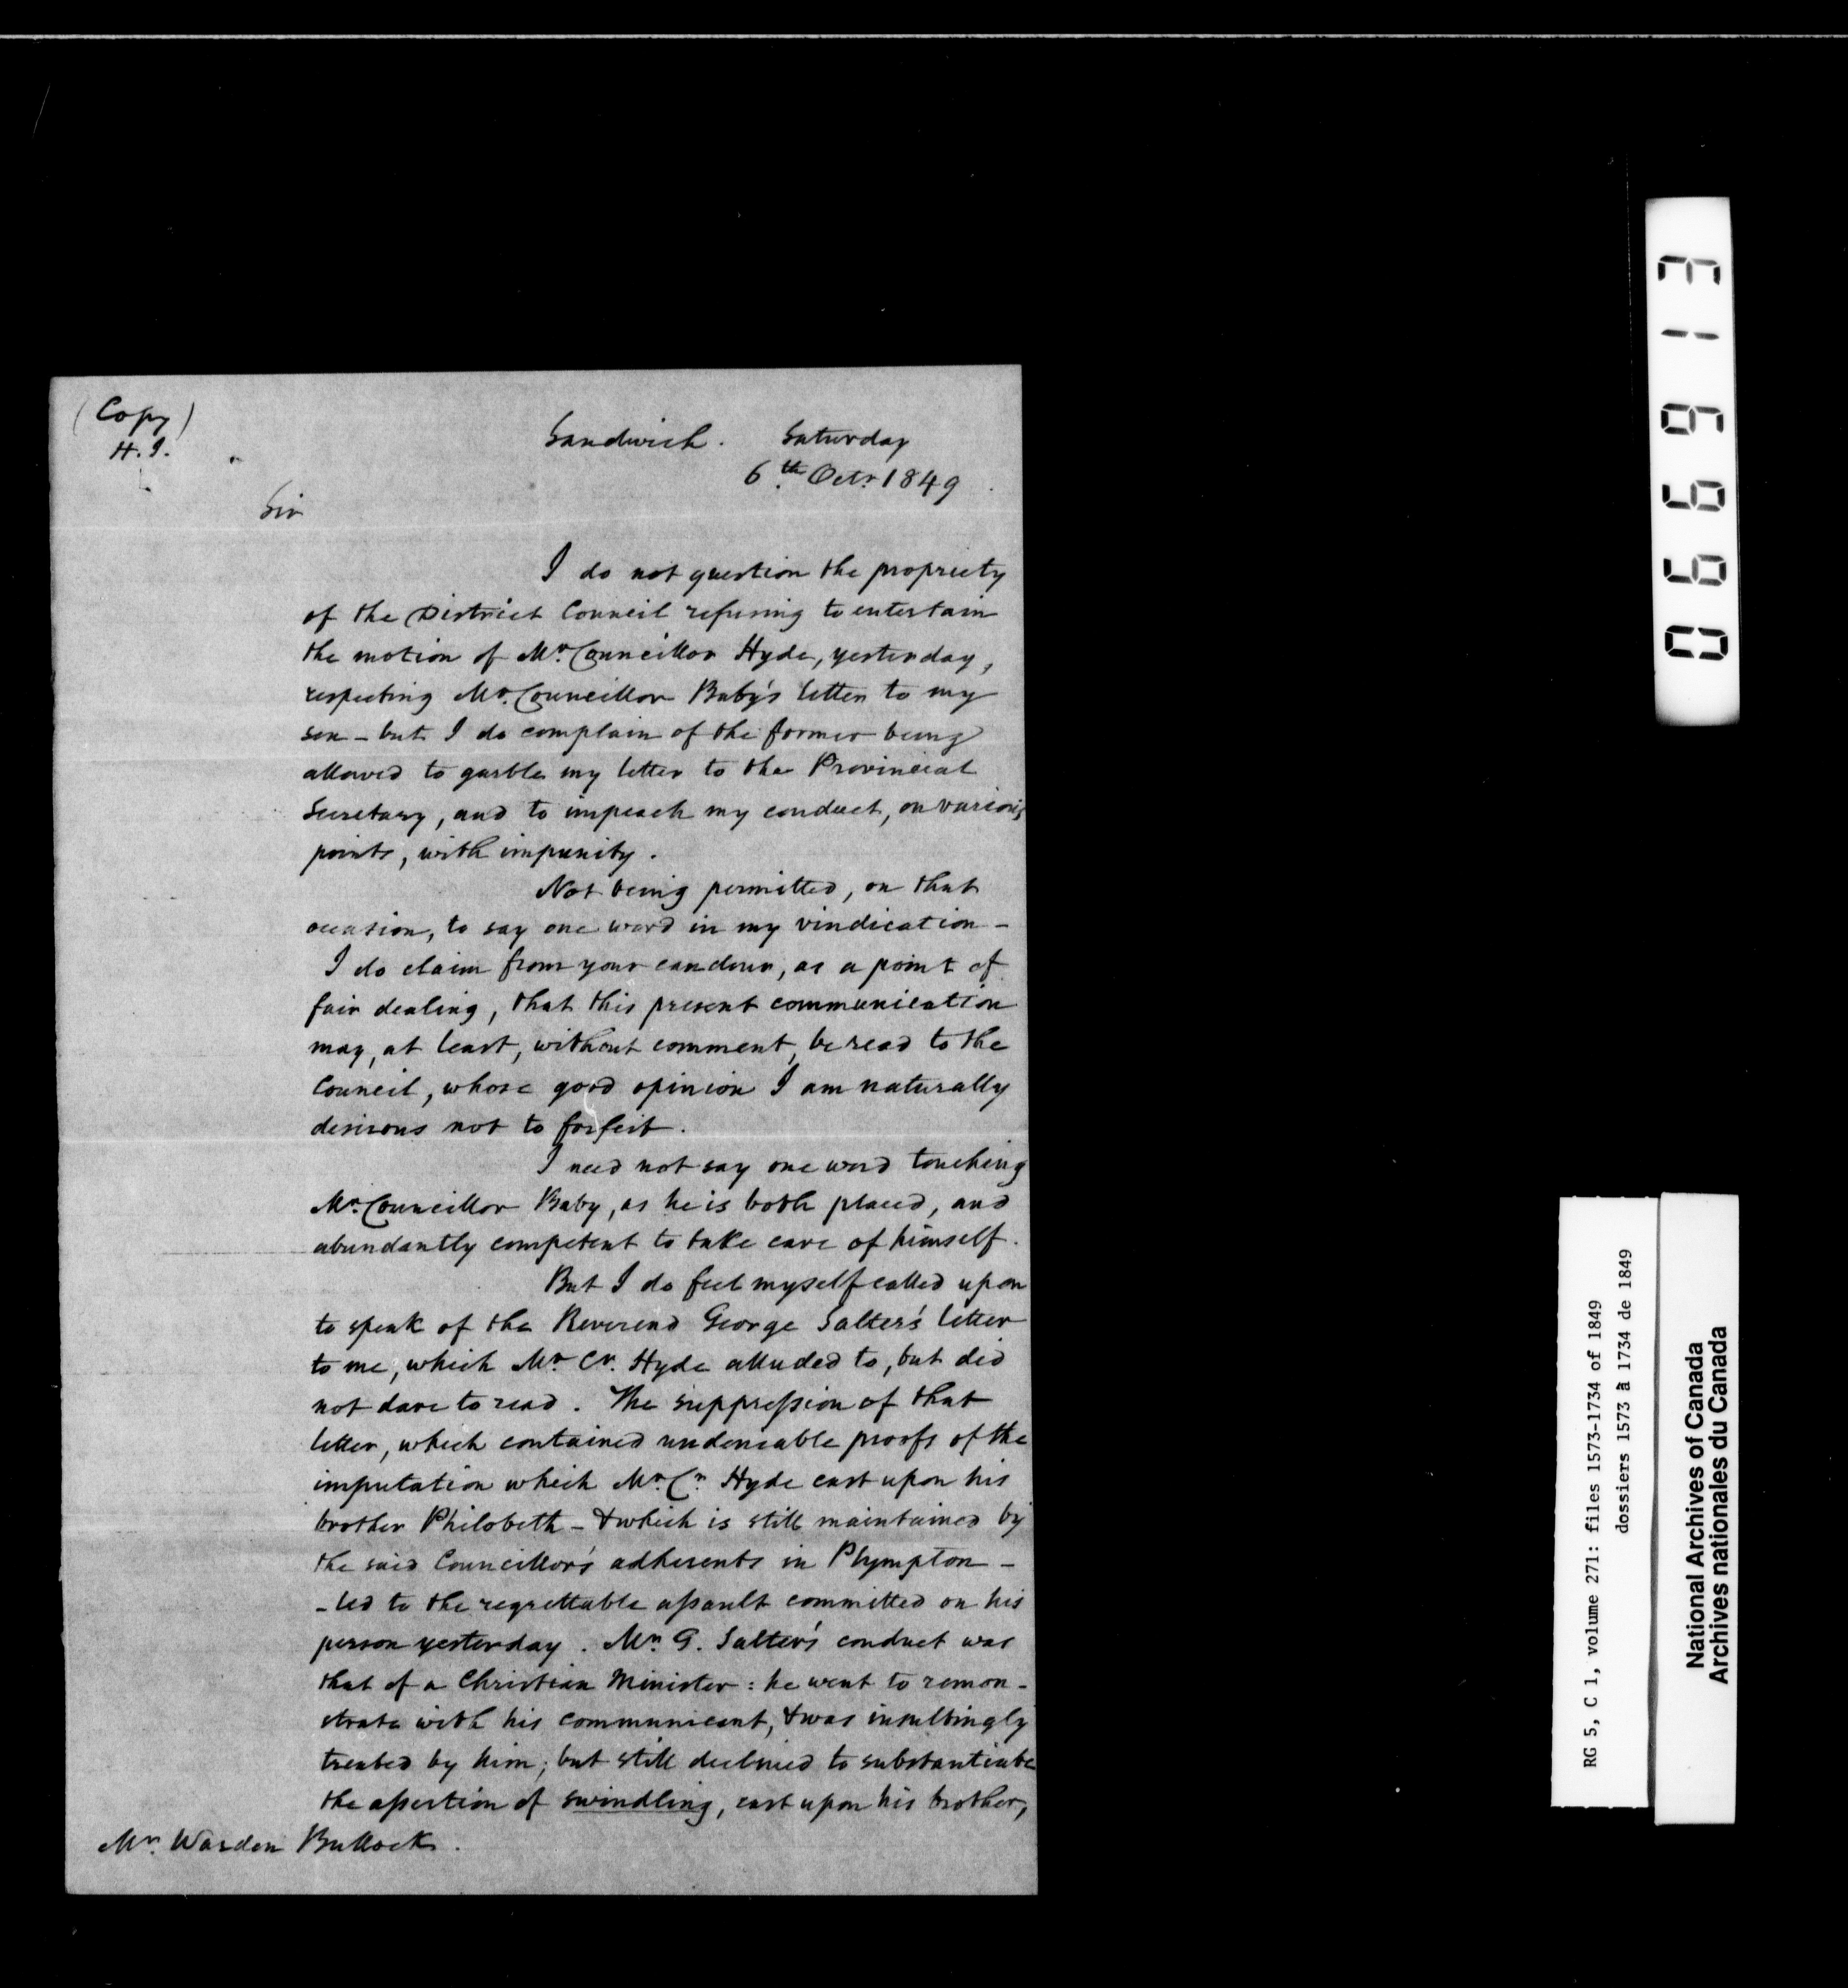 (Copy)
H. J.
Sandwich. Saturday
6th Octr. 1849
Sir
I do not question the propriety
of the District Council refusing to entertain
the motion of Mr. Councillor Hyde, yesterday,
respecting Mr. Councillor Baby's letter to my
son - but I do complain of the former being
allowed to garble my letter to the Provincial
Secretary, and to impeach my conduct, on various
points, with impunity.
Not being permitted, on that
occasion, to say one word in my vindication -
I do claim from your candour, as a point of
fair dealing, that this present communication
may, at least, without comment, be read to the
Council, whose good opinion I am naturally
desirous not to forfeit.
I need not say one word touching
Mr. Councillor Baby, as he is both placed, and
abundantly competent to take care of himself.
But I do feel myself called upon
to speak of the Reverend George Salter's letter
to me, which Mr. Cr. Hyde alluded to, but did
not dare to read. The suppression of that
letter, which contained undeniable proofs of the
imputation which Mr. Cr. Hyde cast upon his
brother Philobeth - & which is still maintained by
the said Councillor's adherents in Plympton -
- led to the regrettable assault committed on his
person yesterday. Mr. G. Salter's conduct was
that of a Christian Minister: he went to remon-
strate with his communicant, & was insultingly
treated by him; but still declined to substantiate
the assertion of swindling, cast upon his brother,
Mr. Warden Bullock.
066913
RG 5, C 1, volume 271: files 1573-1734 of 1849
dossiers 1573 à 1734 de 1849
National Archives of Canada
Archives nationales du Canada